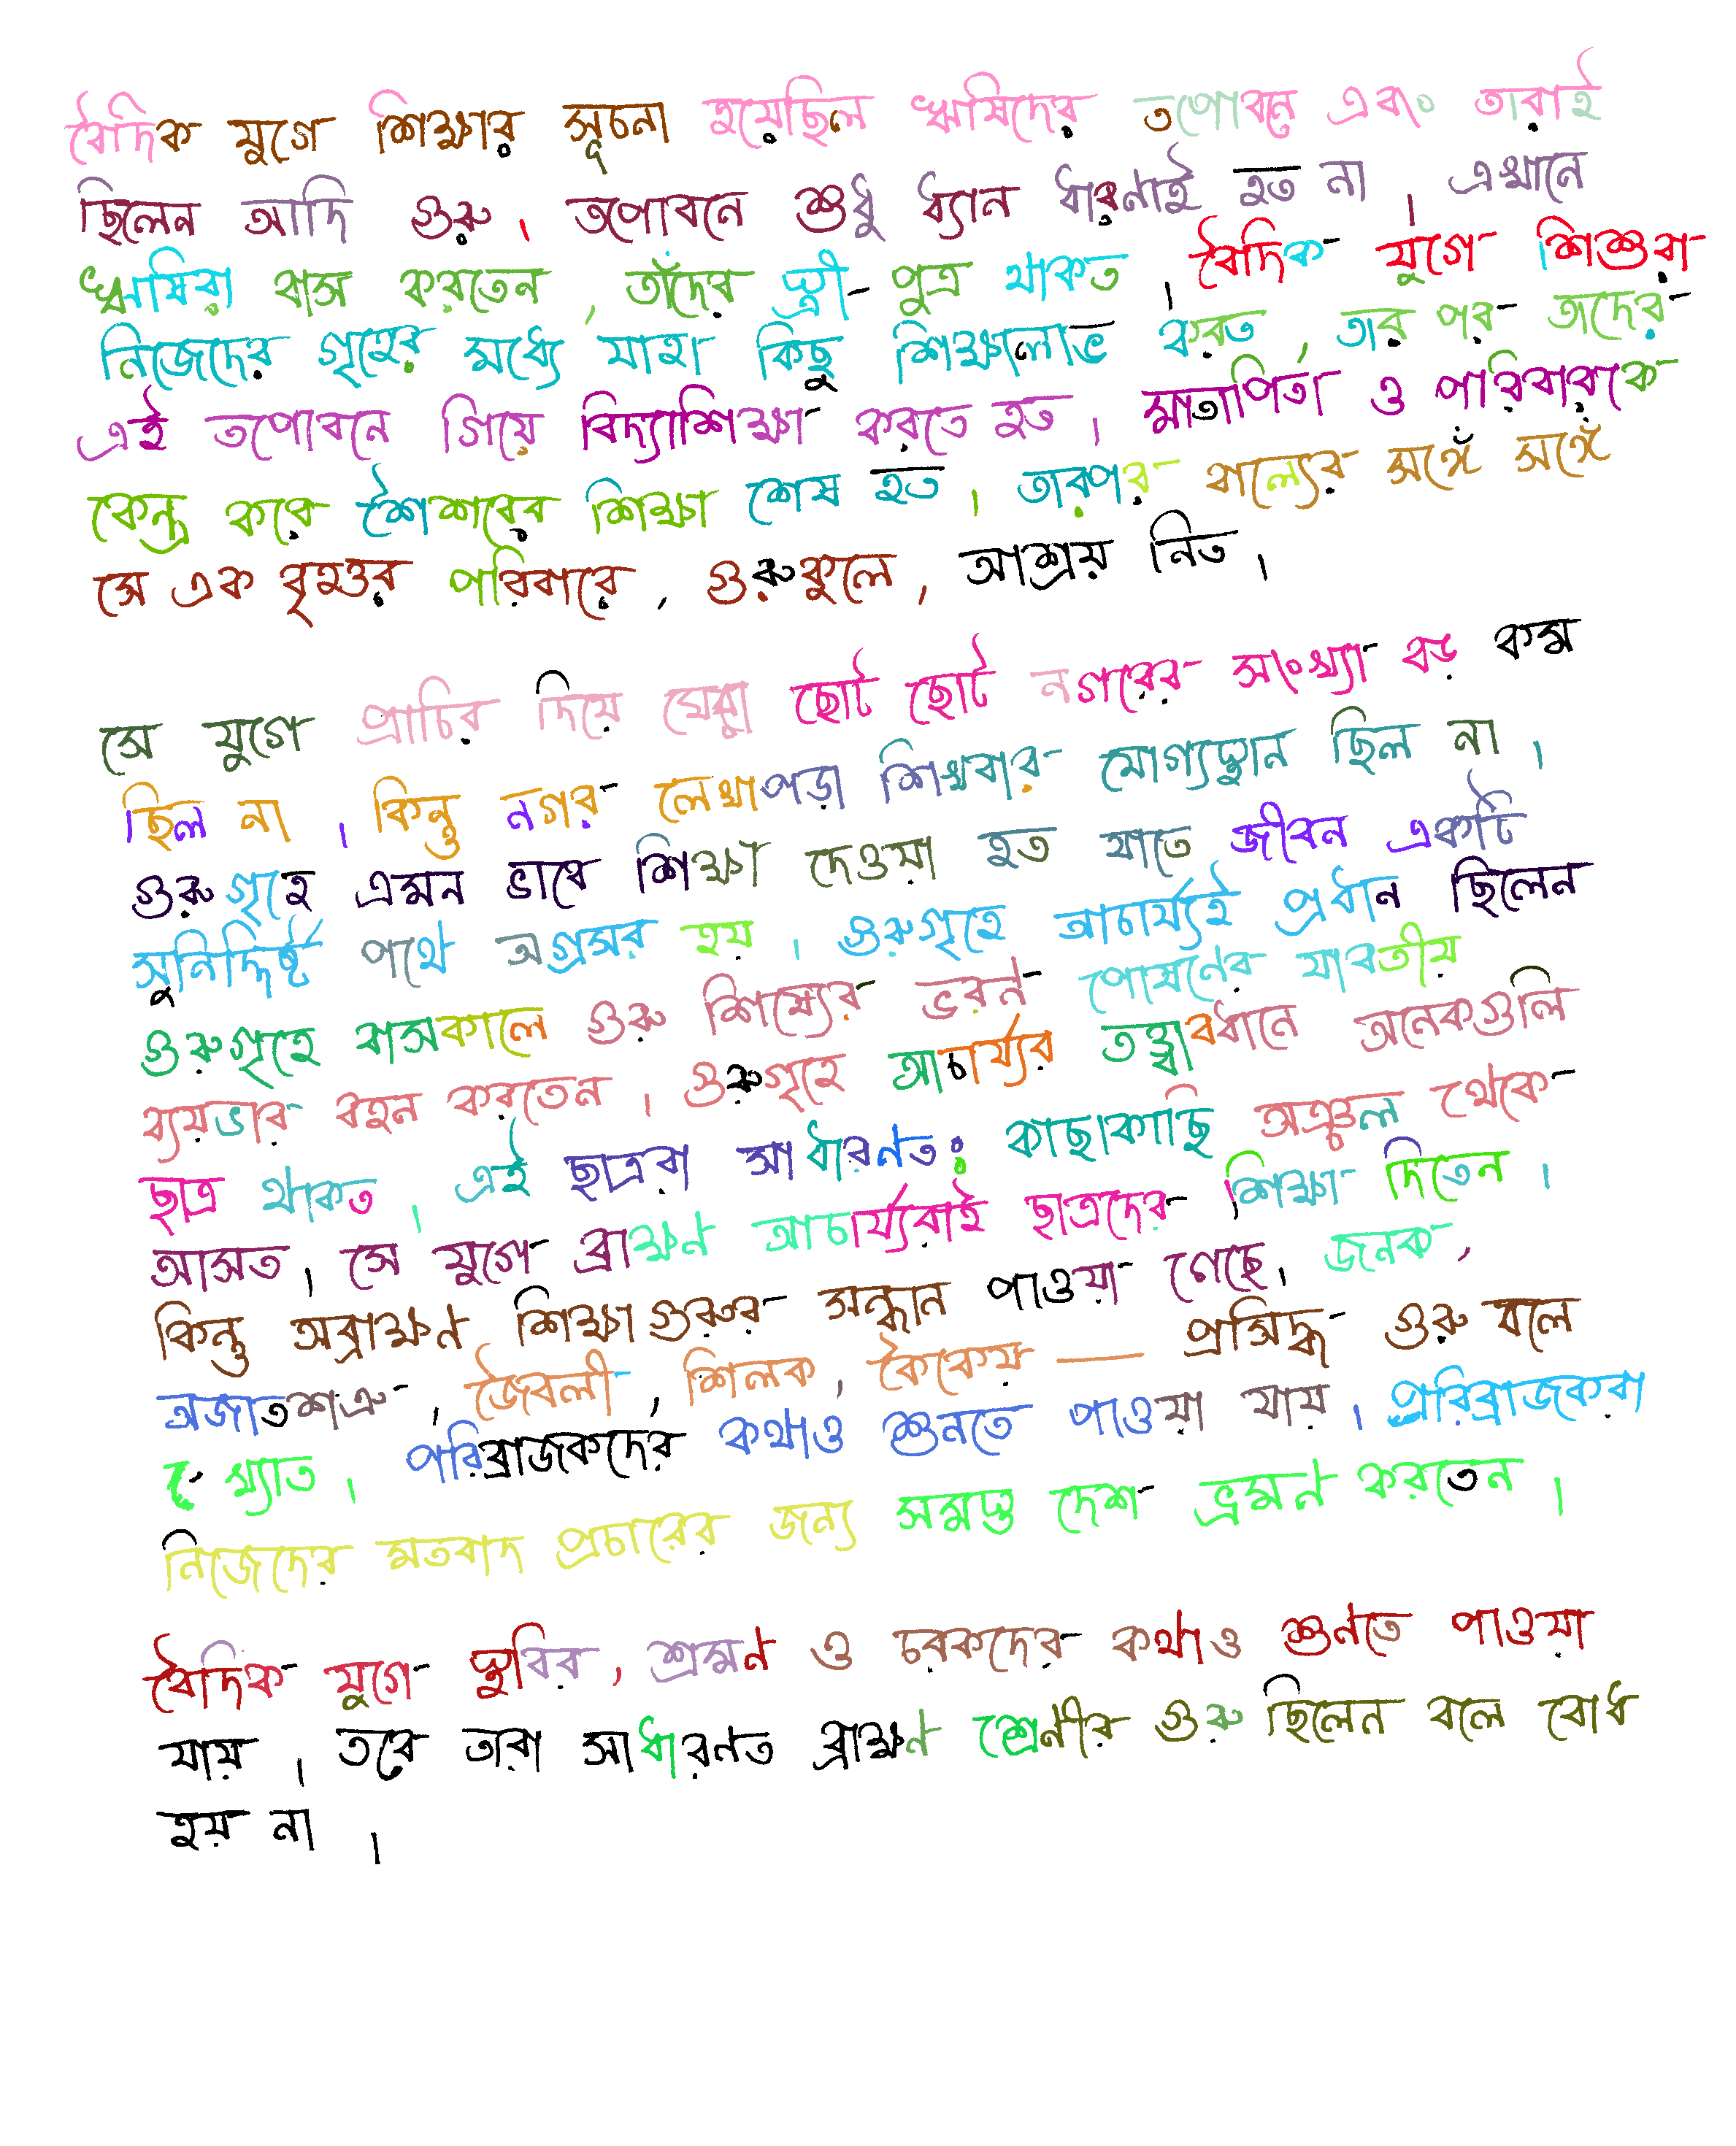 বৈদিক যুগে শিক্ষার সূচনা হয়েছিল ঋষিদের তপোবনে এবং তারাই
ছিলেন আদি গুরু । তপোবনে শুধু ধ্যান ধারণাই হত না । এখানে
ঋষিরা বাস করতেন , তাঁদের স্ত্রী - পুত্র থাকত । বৈদিক যুগে শিশুরা
নিজেদের গৃহের মধ্যে যাহা কিছু শিক্ষালাভ করত , তার পর তাদের
এই তপোবনে গিয়ে বিদ্যাশিক্ষা করতে হত । মাতাপিতা ও পরিবারকে
কেন্দ্র করে শৈশবের শিক্ষা শেষ হত । তারপর বাল্যের সঙ্গে সঙ্গে
সে এক বৃহত্তর পরিবারে , গুরুকুলে , আশ্রয় নিত ।
সে যুগে প্রাচির দিয়ে ঘেরা ছোট ছোট নগরের সংখ্যা বড় কম
ছিল না । কিন্তু নগর লেখাপড়া শিখবার যোগ্যস্থান ছিল না ।
গুরুগৃহে এমন ভাবে শিক্ষা দেওয়া হত যাতে জীবন একটি
সুনির্দ্দিষ্ট পথে অগ্রসর হয় । গুরুগৃহে আচার্য্যই প্রধান ছিলেন
গুরুগৃহে বাসকালে গুরু শিষ্যের ভরণ পোষণের যাবতীয়
ব্যয়ভার বহন করতেন । গুরুগৃহে আচার্য্যর তত্ত্বাবধানে অনেকগুলি
ছাত্র থাকত । এই ছাত্ররা সাধারণতঃ কাছাকাছি অঞ্চল থেকে
আসত । সে যুগে ব্রাহ্মণ আচার্য্যরাই ছাত্রদের শিক্ষা দিতেন ।
কিন্তু অব্রাহ্মণ শিক্ষাগুরুর সন্ধান পাওয়া গেছে । জনক ,
অজাতশত্রু , জৈবলী , শিলক , কৈকেয় — প্রসিদ্ধ গুরু বলে
খ্যাত । পরিব্রাজকদের কথাও শুনতে পাওয়া যায় । পরিব্রাজকরা
নিজেদের মতবাদ প্রচারের জন্য সমস্ত দেশ ভ্রমণ করতেন ।
বৈদিক যুগে স্থবির , শ্রমণ ও চরকদের কথাও শুনতে পাওয়া
যায় । তবে তারা সাধারণত ব্রাহ্মণ শ্রেণীর গুরু ছিলেন বলে বোধ
হয় না ।